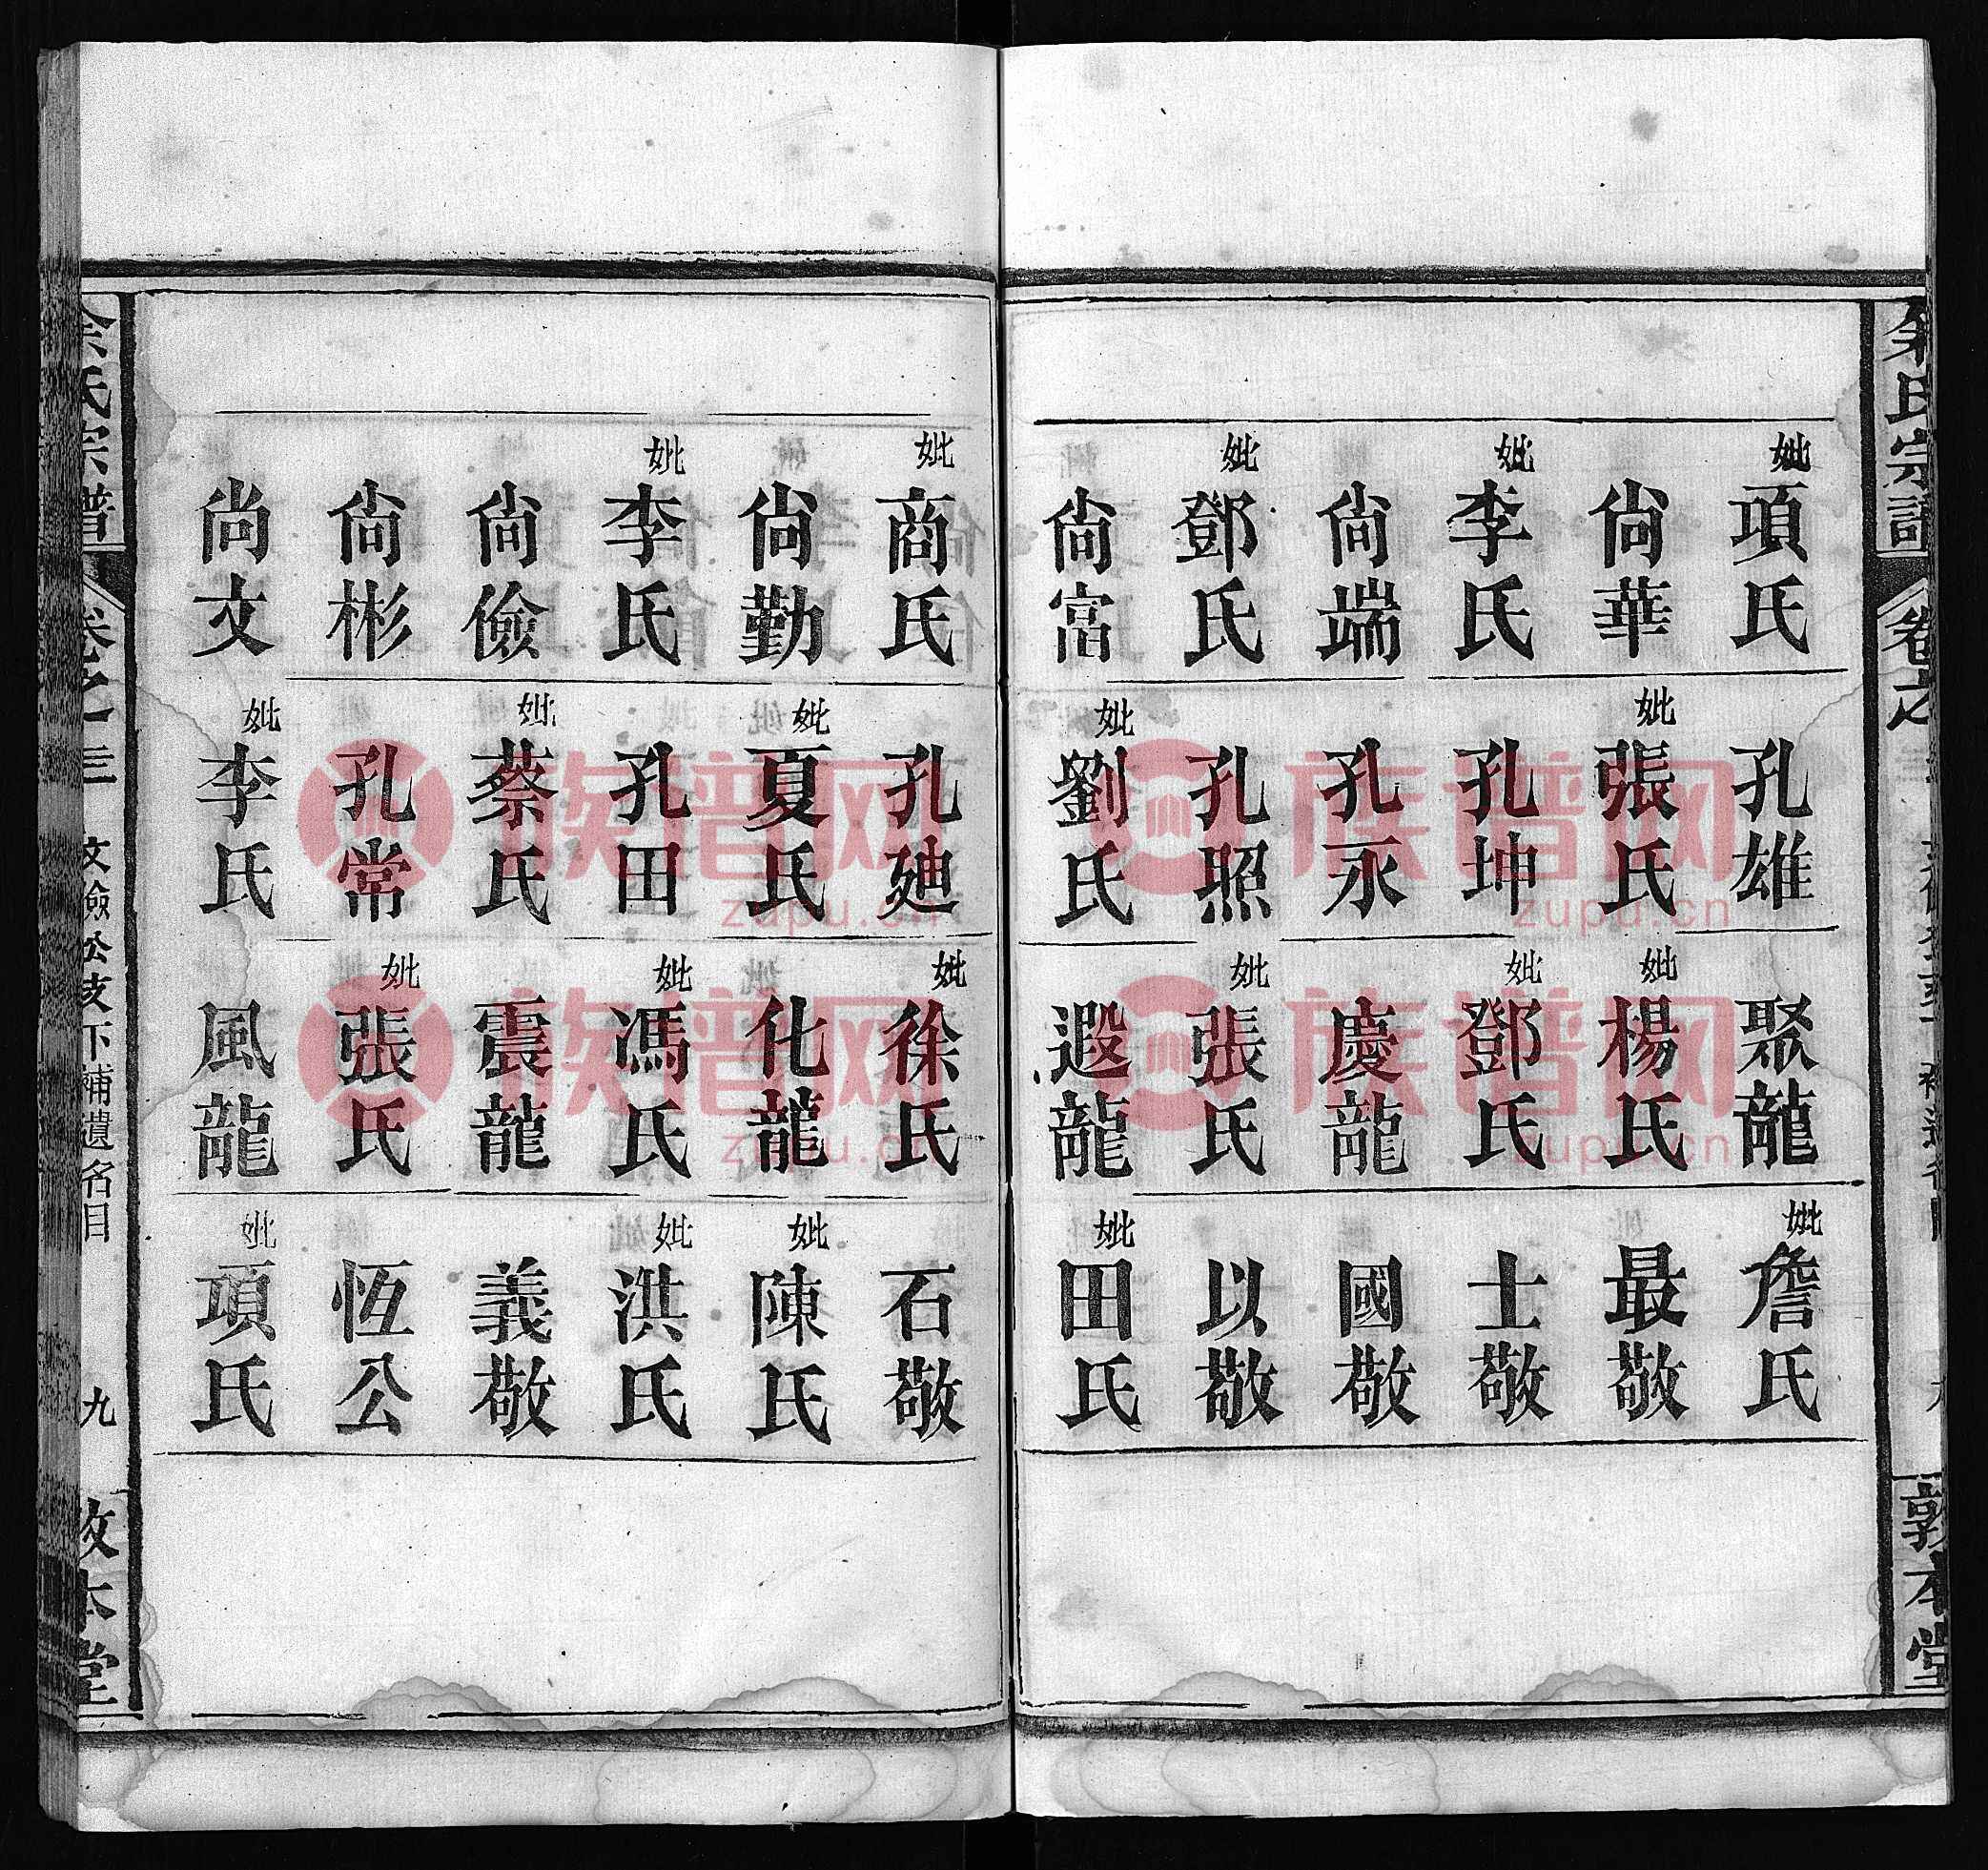 余氏宗譜
卷之
敦本堂
妣項氏
尙華
妣李氏
尙端
妣鄧氏
尙富
孔雄
妣張氏
孔坤
孔永
孔照
妣劉氏
聚龍
妣楊氏
妣鄧氏
慶龍
妣張氏
遐龍
妣詹氏
最敬
士敬
國敬
以敬
妣田氏
妣商氏
尙勤
妣李氏
尙儉
尙彬
尙文
孔廸
妣夏氏
孔田
妣蔡氏
孔常
妣李氏
妣徐氏
化龍
妣馮氏
震龍
妣張氏
風龍
石敬
妣陳氏
妣洪氏
義敬
恆公
妣項氏
余氏宗譜
卷之三
文儉公支下補遺名目
九
敦本堂
族谱网
zupu.cn
族谱网
zupu.cn
族谱网
zupu.cn
族谱网
zupu.cn